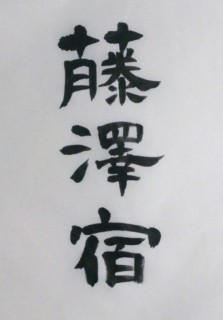 藤澤宿